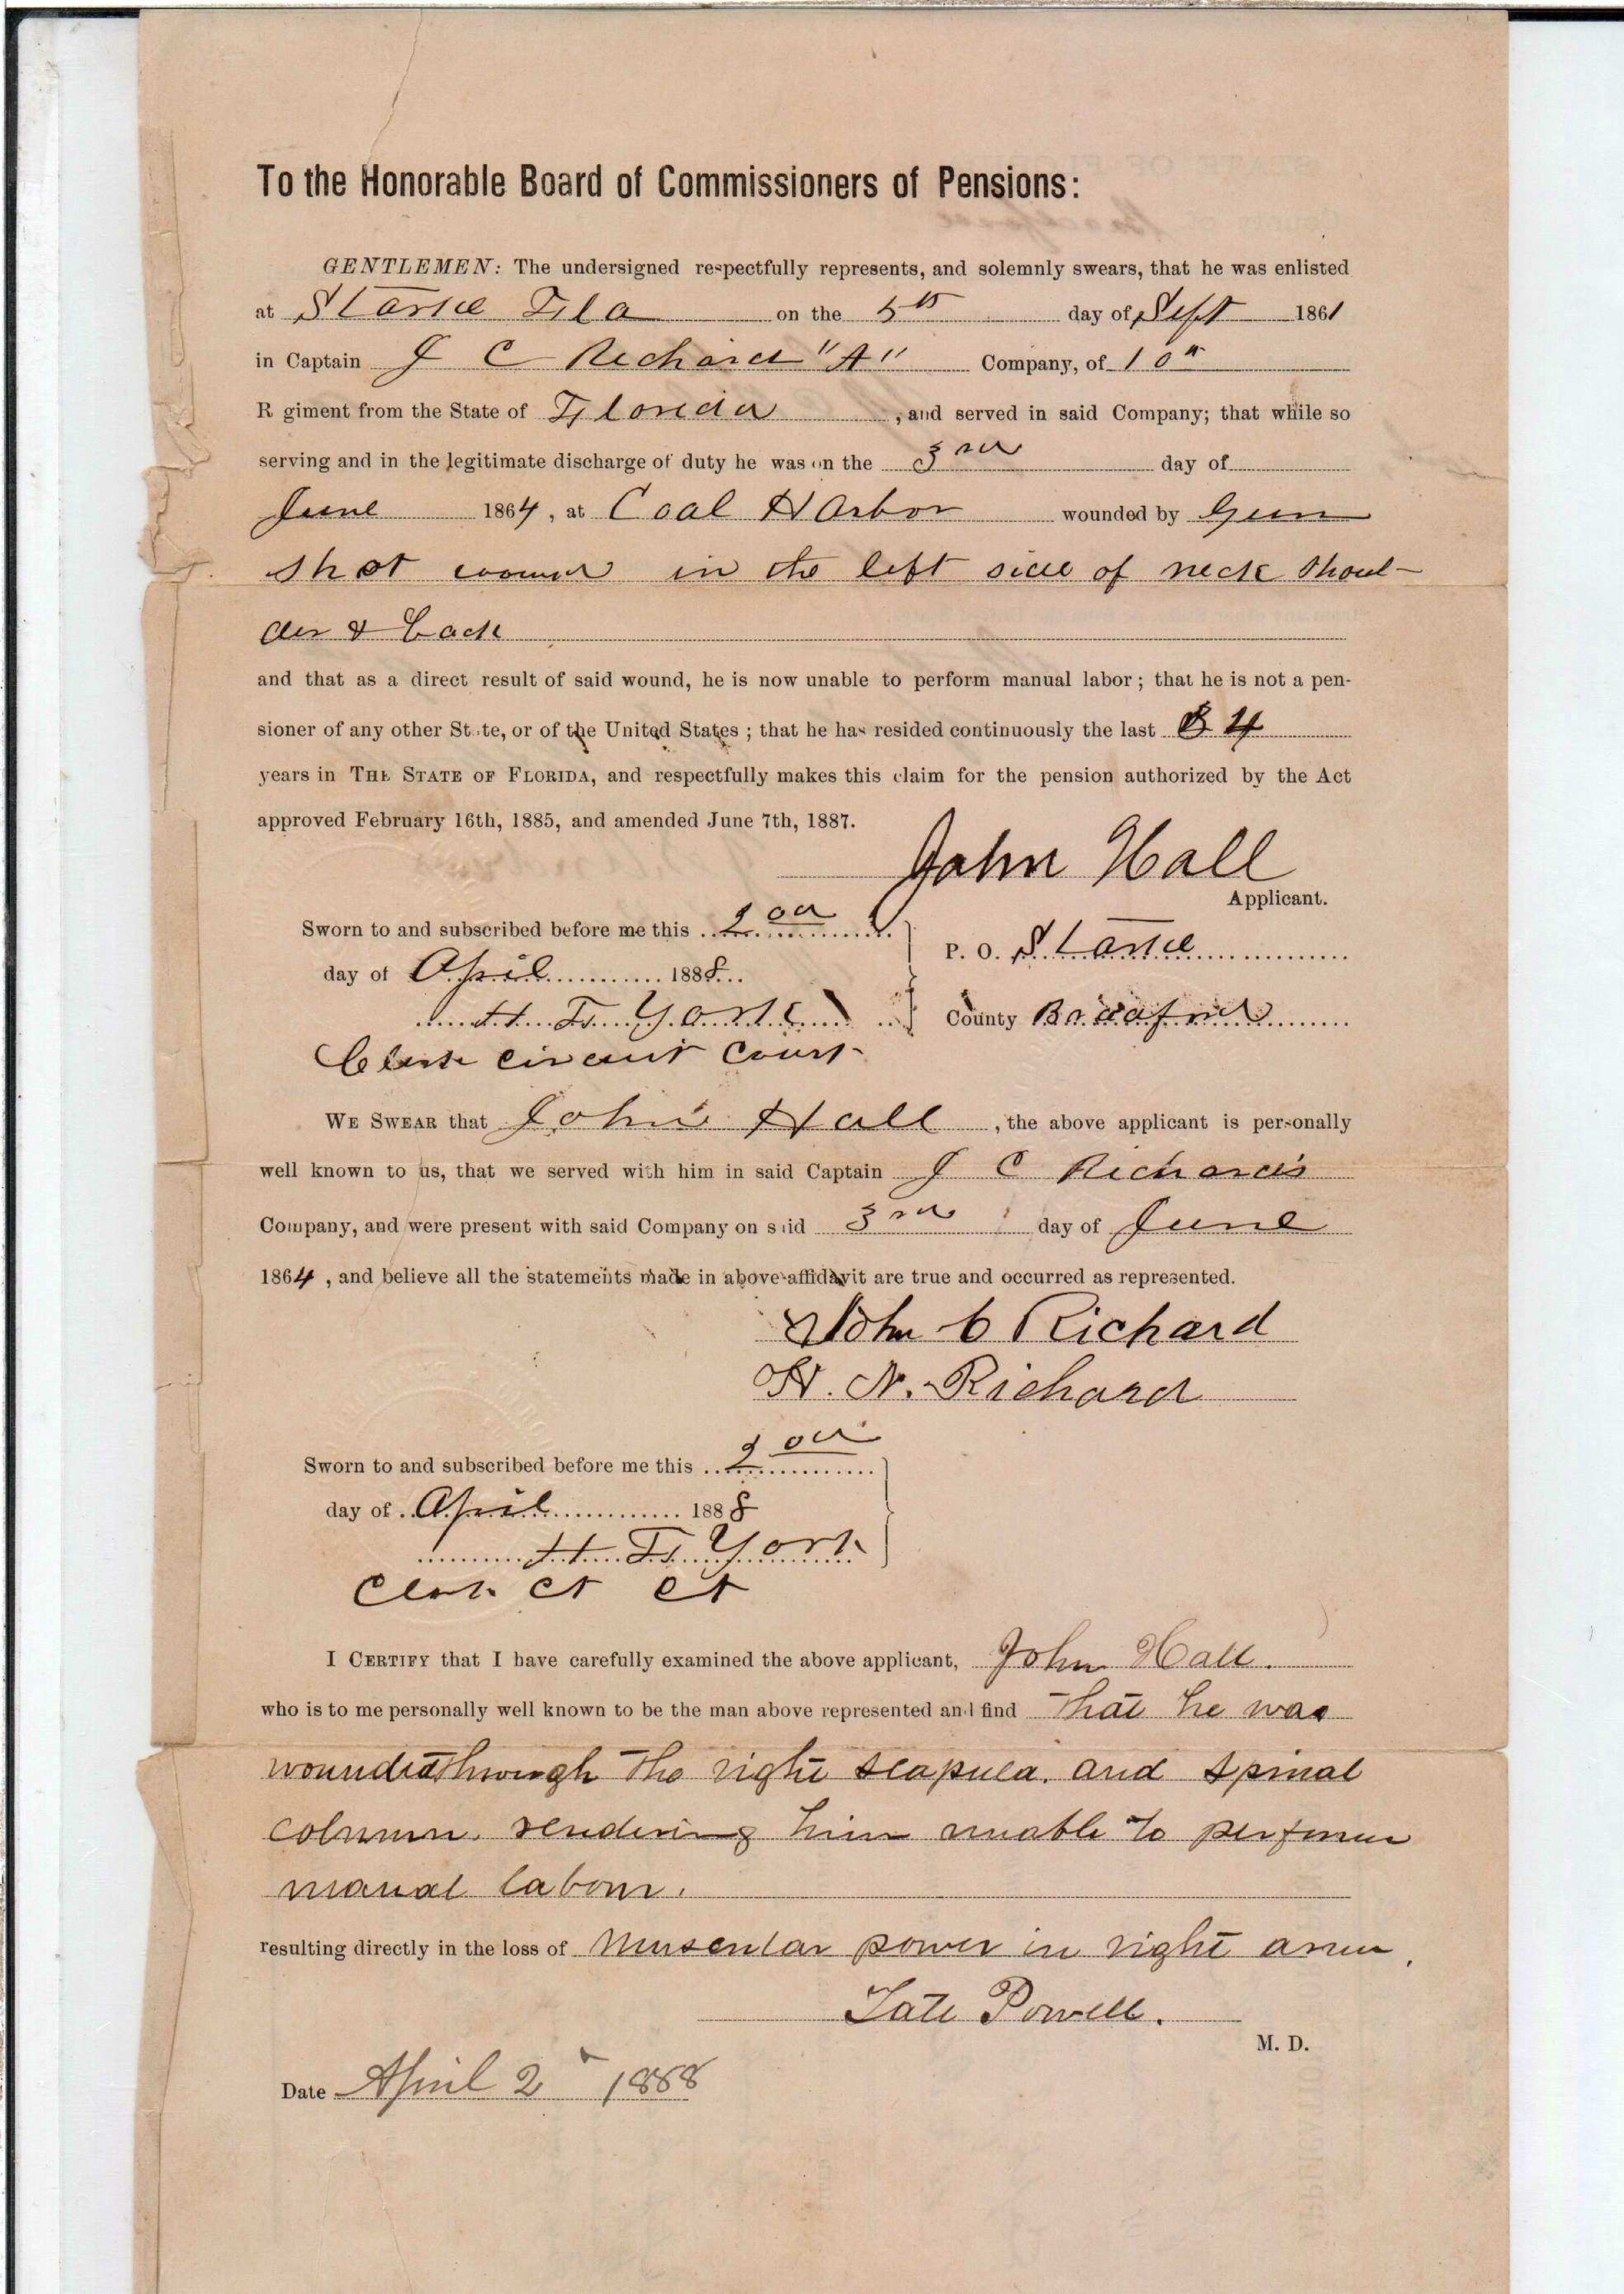 To the Honorable Board of Commissioners of Pensions:
GENTLEMEN: The undersigned respectfully represents, and solemnly swears, that he was enlisted
at Starke Fla on the 5th day of Sept 1861
in Captain J C Richard "A" Company, of 10th
R giment from the State of Florida, and served in said Company; that while so
serving and in the legitimate discharge of duty he was on the 3rd day of
June 1864, at Coal Harbor wounded by Gun
shot wound in the left side of neck shoul-
der & back
and that as a direct result of said wound, he is now unable to perform manual labor; that he is not a pen-
sioner of any other State, or of the United States; that he has resided continuously the last 4
years in THE STATE OF FLORIDA, and respectfully makes this claim for the pension authorized by the Act
approved February 16th, 1885, and amended June 7th, 1887.
John Hall
Applicant.
Sworn to and subscribed before me this 2nd
day of April 1888
H. F. York
Clerk circuit Court
P. O. Starke
County Bradford
WE SWEAR that John Hall, the above applicant is personally
well known to us, that we served with him in said Captain J C Richards
Company, and were present with said Company on said 3rd day of June
1864, and believe all the statements made in above affidavit are true and occurred as represented.
John C Richard
H. N. Richard
Sworn to and subscribed before me this 2nd
day of April 1888
H. F. York
Clerk Ct Ct
I CERTIFY that I have carefully examined the above applicant, John Hall.
who is to me personally well known to be the man above represented and find that he was
wounded through the right scapula. and spinal
column. rendering him unable to perform
manual labour.
resulting directly in the loss of muscular power in right arm.
Tate Powell.
M. D.
Date April 2 1888